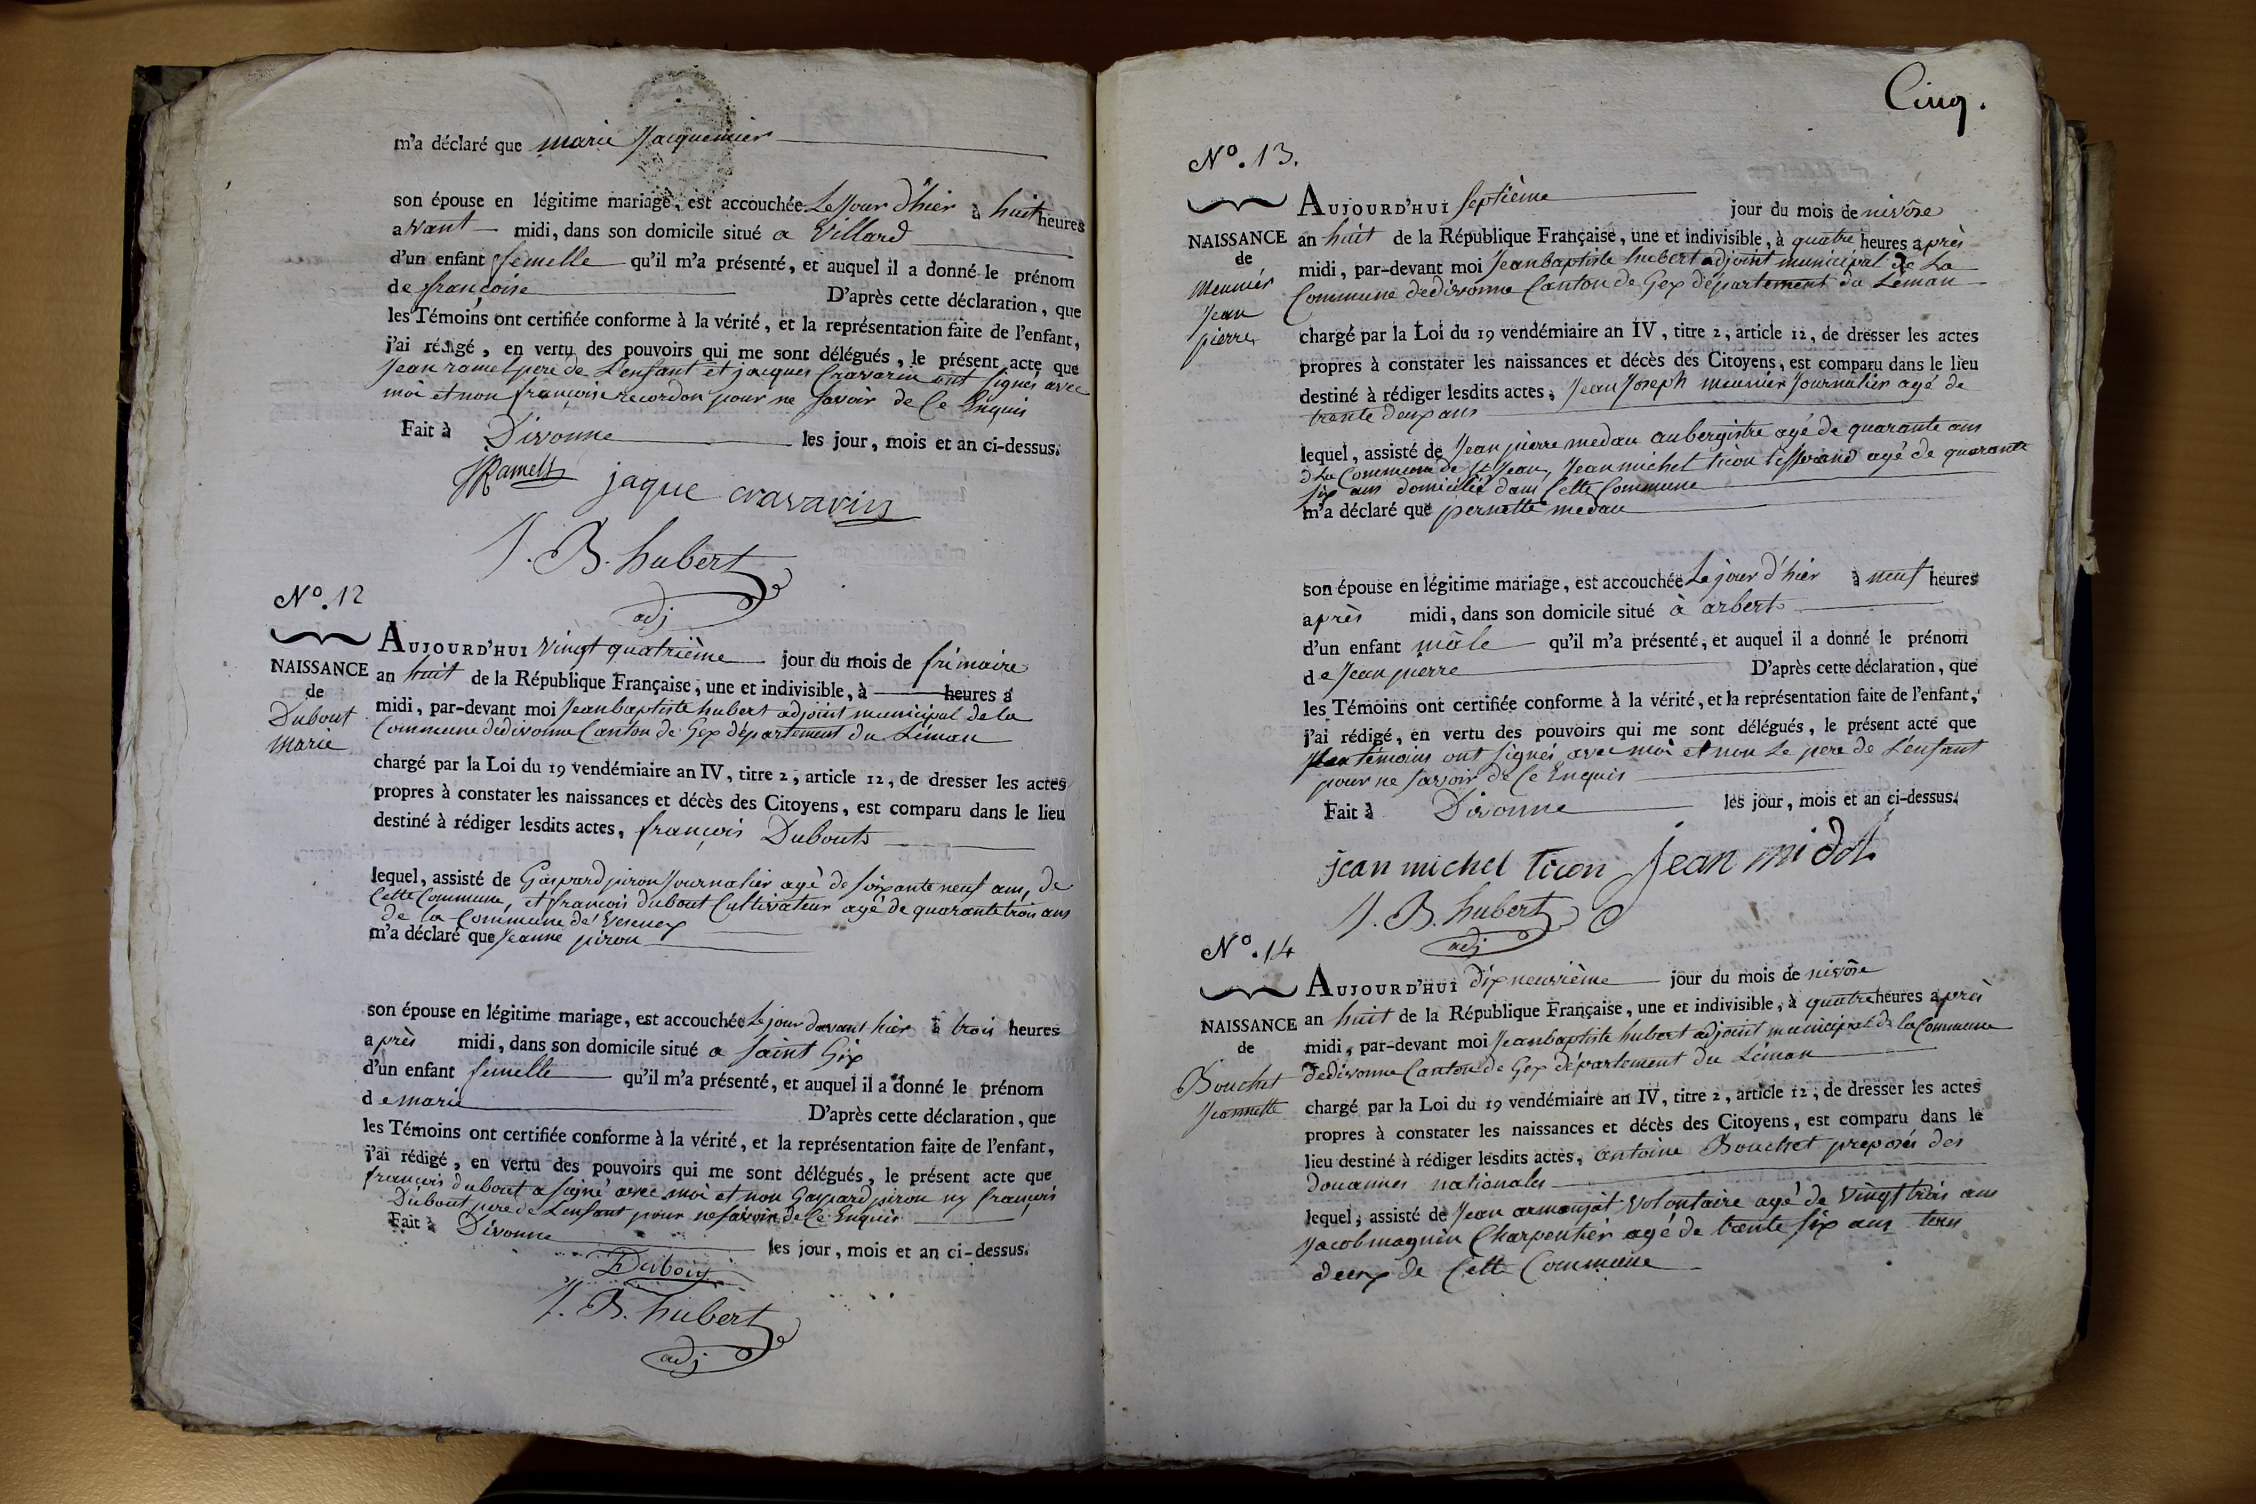 m'a déclaré que marie Jacquemier
son épouse en légitime mariage, est accouchée Le Jour d'hier à huit heures
avant midi, dans son domicile situé a Villard
d'un enfant femelle qu'il m'a présenté, et auquel il a donné le prénom
de françoise D'après cette déclaration, que
les Témoins ont certifiée conforme à la vérité, et la représentation faite de l'enfant,
j'ai rédigé, en vertu des pouvoirs qui me sont délégués, le présent acte que
Jean ramel pere de L'enfant et jacques Cravarin ont signés avec
moi et non françoise recordon pour ne savoir de Ce Enquis
Fait à Divonne les jour, mois et an ci-dessus.
JRamel jaque cravarin
J. B. hubert
adj
N.º 12
NAISSANCE
de
Dubout
marie
AUJOURD'HUI vingt quatrième jour du mois de frimaire
an huit de la République Française, une et indivisible, à heures a
midi, par-devant moi Jean baptiste hubert adjoint municipal de la
Commune dedivonne Canton de Gex département du Léman
chargé par la Loi du 19 vendémiaire an IV, titre 2, article 12, de dresser les actes
propres à constater les naissances et décès des Citoyens, est comparu dans le lieu
destiné à rédiger lesdits actes, françois Dubout
lequel, assisté de Gaspard piron Journalier agé de soixante neuf ans, de
Cette Commune, et françois dubout Cultivateur agé de quarante trois ans
de la Commune de Vesenex
m'a déclaré que Jeanne piron
son épouse en légitime mariage, est accouchée Le jour davant hier à trois heures
après midi, dans son domicile situé a saint Gix
d'un enfant femelle qu'il m'a présenté, et auquel il a donné le prénom
de marie D'après cette déclaration, que
les Témoins ont certifiée conforme à la vérité, et la représentation faite de l'enfant,
j'ai rédigé, en vertu des pouvoirs qui me sont délégués, le présent acte que
françois dubout a signé avec moi et non Gaspard piron ny françois
Dubout pere de L'enfant pour ne savoir de Ce Enquis
Fait à Divonne les jour, mois et an ci-dessus.
Dubout
J. B. hubert
adj
Cinq.
N.º 13.
NAISSANCE
de
meunier
Jean
pierre
AUJOURD'HUI septième jour du mois de nivôse
an huit de la République Française, une et indivisible, à quatre heures après
midi, par-devant moi Jean baptiste hubert adjoint municipal de La
Commune dedivonne Canton de Gex département du Léman
chargé par la Loi du 19 vendémiaire an IV, titre 2, article 12, de dresser les actes
propres à constater les naissances et décès des Citoyens, est comparu dans le lieu
destiné à rédiger lesdits actes, Jean Joseph meunier Journalier agé de
trente deux ans
lequel, assisté de Jean pierre medau aubergistre agé de quarante ans
d La Commune de St Jean, Jean michel ticon tisserand agé de quarante
six ans domiciliés dans Cette Commune
m'a déclaré que pernette medau
son épouse en légitime mariage, est accouchée Le jour d'hier à neuf heures
après midi, dans son domicile situé à arbert
d'un enfant mâle qu'il m'a présenté, et auquel il a donné le prénom
de Jean pierre D'après cette déclaration, que
les Témoins ont certifiée conforme à la vérité, et la représentation faite de l'enfant,
j'ai rédigé, en vertu des pouvoirs qui me sont délégués, le présent acte que
témoins ont signés avec moi et non Le pere de L'enfant
pour ne savoir de Ce Enquis
Fait à Divonne les jour, mois et an ci-dessus.
jean michel ticon jean midol
J. B. hubert
adj
N.º 14
NAISSANCE
de
Bouchet
Jeannette
AUJOURD'HUI dix neuvième jour du mois de nivôse
an huit de la République Française, une et indivisible, à quatre heures après
midi, par-devant moi Jean baptiste hubert adjoint municipal de la Commune
dedivonne Canton de Gex département du Léman
chargé par la Loi du 19 vendémiaire an IV, titre 2, article 12, de dresser les actes
propres à constater les naissances et décès des Citoyens, est comparu dans le
lieu destiné à rédiger lesdits actes, antoine Bouchet preposés des
douannes nationales
lequel, assisté de Jean armanjat volontaire agé de vingt trois ans
Jacob magnin Charpentier agé de trente six ans tous
deux de Cette Commune